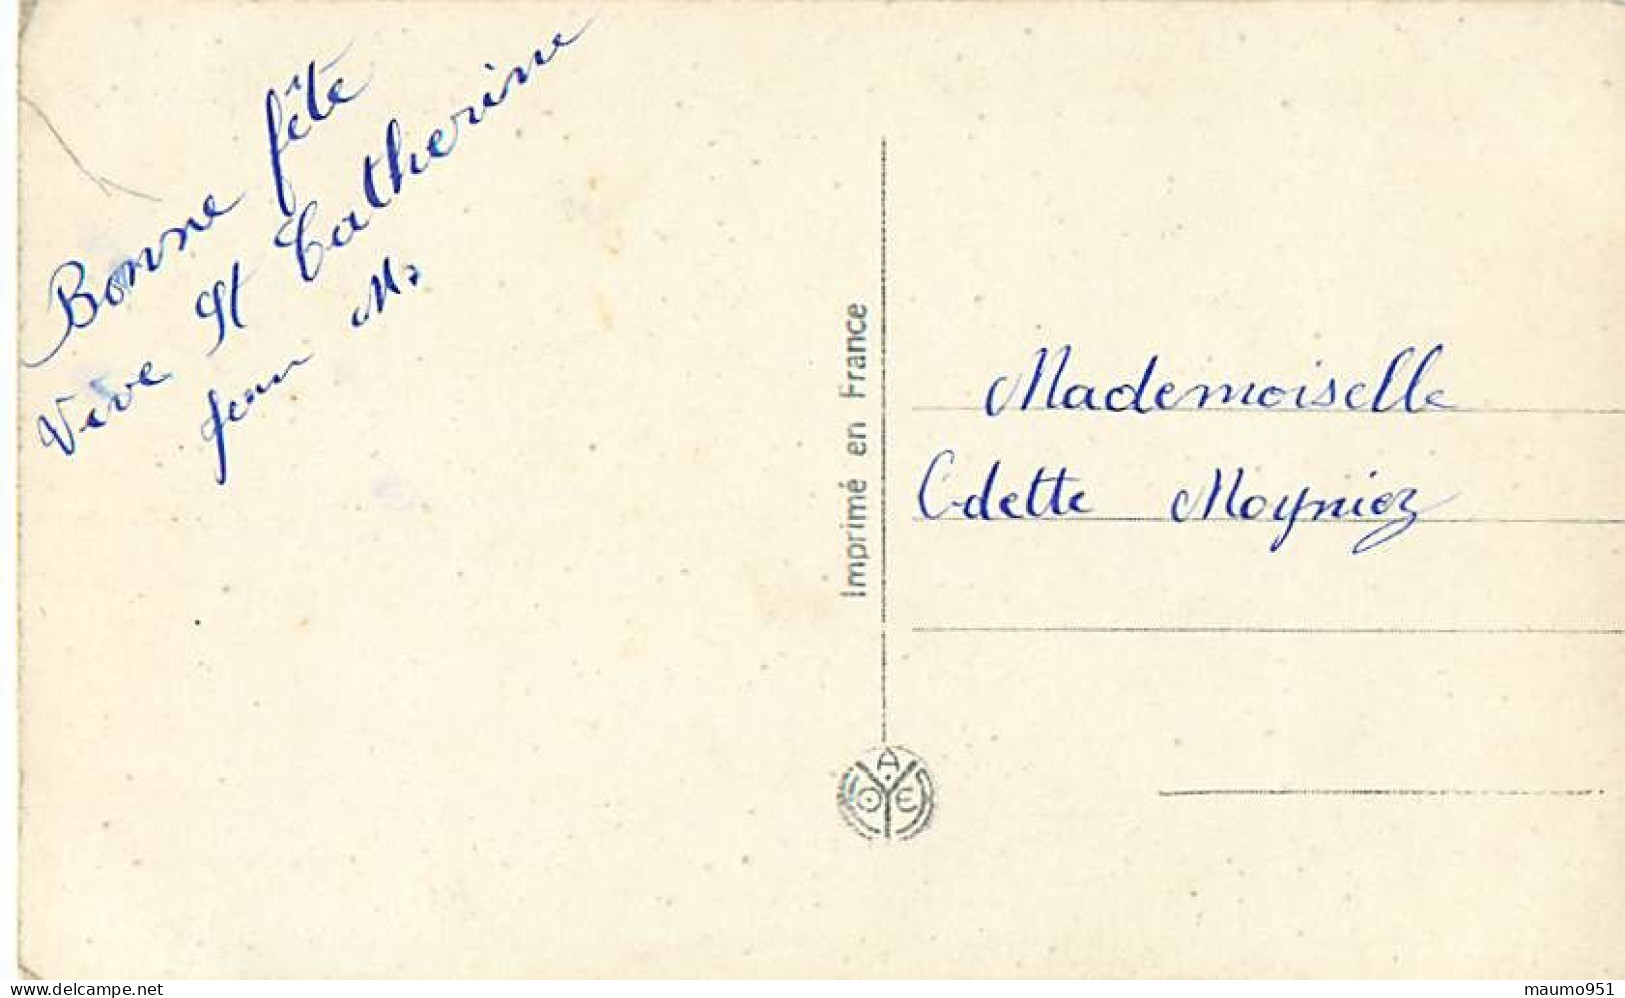 Bonne fête
Vive St Catherine
Jean M.
Imprimé en France
Mademoiselle
Odette Moyniez
A
O E
www.delcampe.net
maumo951